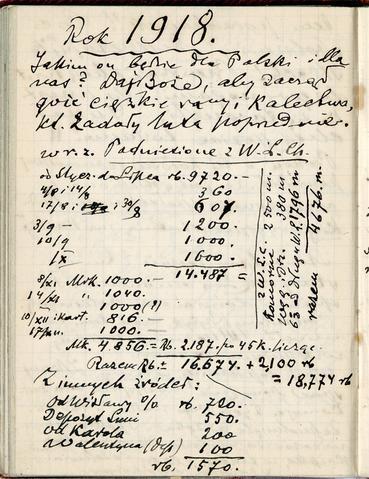 Rok 1918.
Jakim on będzie dla Polski i dla
nas? Daj Boże, aby zaczął
goić ciężkie rany i kalectwa,
kt. zadały lata poprzednie.
w r. z. Podniesione z W.L.Ch.
od Stycz. do Lipca rb. 9720.—
4/8 i 14/8 360
17/8 i 30/8 607
3/9 — 1200.
10/9 1000.
/IX 1600.
14.487 =
8/XI Mrk. 1000.—
14/XI " 1040.
1000 (?)
10/XII i kart. 816.—
17/ 1000.—
Mk. 4.856 = Rb. 2.187. po 45 k. licząc.
Razem Rb. = 16.674 + 2,100 rb
= 18,774 rb
z W.Ł.C. 2500 m.
Komorne 380 m
razem 4676 m.
Z innych źródeł:
od Wisławy % rb. 720.—
Depozyt 550.
od Karola 200
Walentyna (dep) 100
rb. 1570.